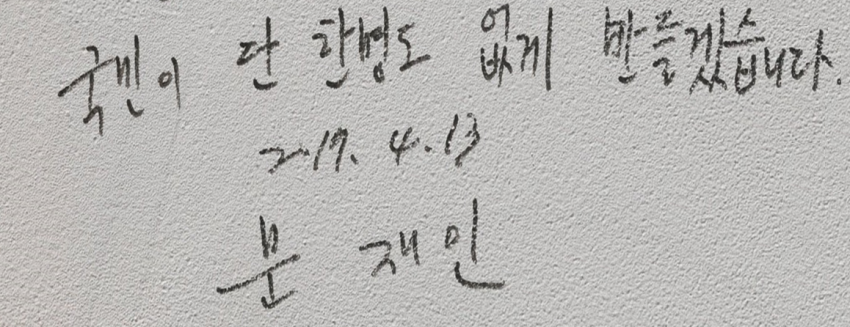 국민이 단 한명도 없게 만들겠습니다.
2017. 4. 13
문재인